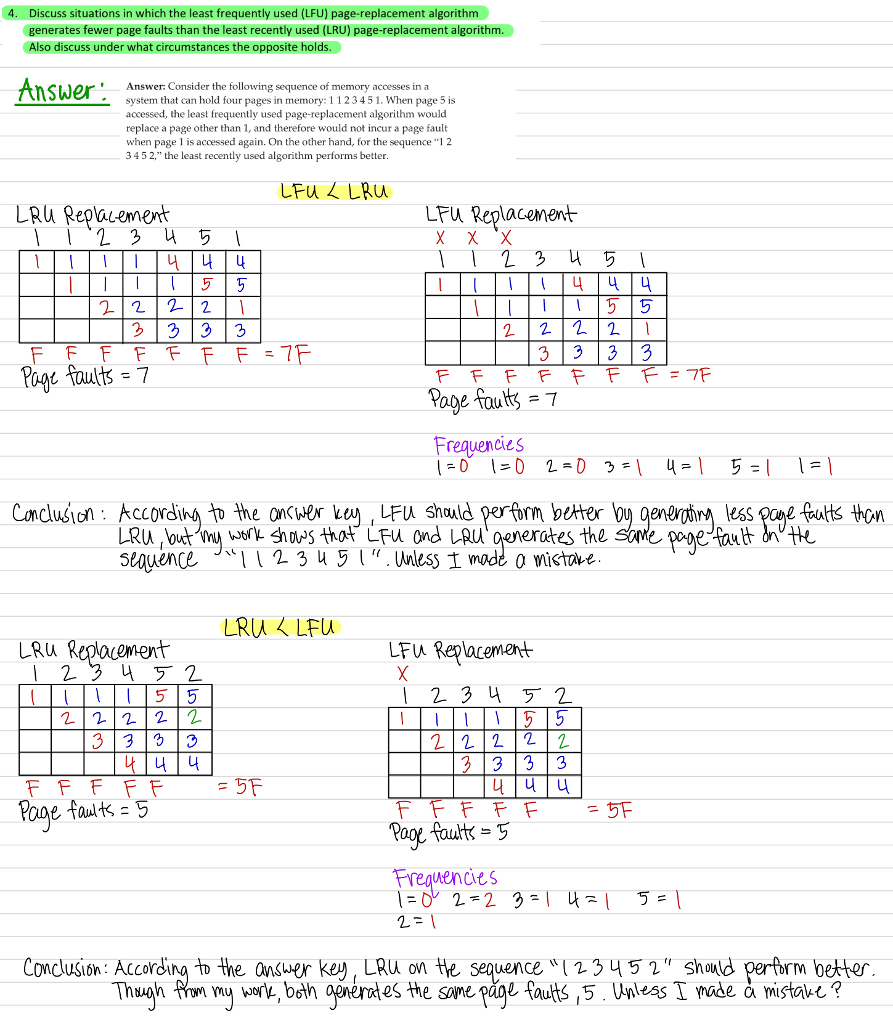 4. Discuss situations in which the least frequently used (LFU) page-replacement algorithm
generates fewer page faults than the least recently used (LRU) page-replacement algorithm.
Also discuss under what circumstances the opposite holds.
Answer:
Answer: Consider the following sequence of memory accesses in a
system that can hold four pages in memory: 1 1 2 3 4 5 1. When page 5 is
accessed, the least frequently used page-replacement algorithm would
replace a page other than 1, and therefore would not incur a page fault
when page 1 is accessed again. On the other hand, for the sequence “1 2
3 4 5 2,” the least recently used algorithm performs better.
LFU < LRU
LRU Replacement
1 1 2 3 4 5 1
1 1 1 1 4 4 4
1 1 1 1 5 5
2 2 2 2 1
3 3 3 3
F F F F F F F = 7F
Page faults = 7
LFU Replacement
X X X
1 1 2 3 4 5 1
1 1 1 1 4 4 4
1 1 1 1 5 5
2 2 2 2 1
3 3 3 3
F F F F F F F = 7F
Page faults = 7
Frequencies
1=0 1=0 2=0 3=1 4=1 5=1 1=1
Conclusion: According to the answer key, LFU should perform better by generating less page faults than
LRU, but my work shows that LFU and LRU generates the same page fault on the
sequence "1 1 2 3 4 5 1". Unless I made a mistake.
LRU < LFU
LRU Replacement
1 2 3 4 5 2
1 1 1 1 5 5
2 2 2 2 2
3 3 3 3
4 4 4
F F F F F = 5F
Page faults = 5
LFU Replacement
X
1 2 3 4 5 2
1 1 1 1 5 5
2 2 2 2 2
3 3 3 3
4 4 4
F F F F F = 5F
Page faults = 5
Frequencies
1=0 2=2 3=1 4=1 5=1
2=1
Conclusion: According to the answer key, LRU on the sequence "1 2 3 4 5 2" should perform better.
Though from my work, both generates the same page faults, 5. Unless I made a mistake?